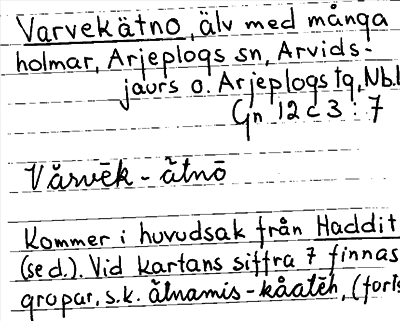 Varvekätno, älv med många
holmar, Arjeplogs sn, Arvids-
jaurs o. Arjeplogs tg, Nb.l
Gn 12 c 3 : 7
Vǎrvēk - ǎtnō
Kommer i huvudsak från Haddit
(se d.). Vid kartans siffra 7 finnas
gropar, s.k. ǎtnamis-kåatēh, (forts